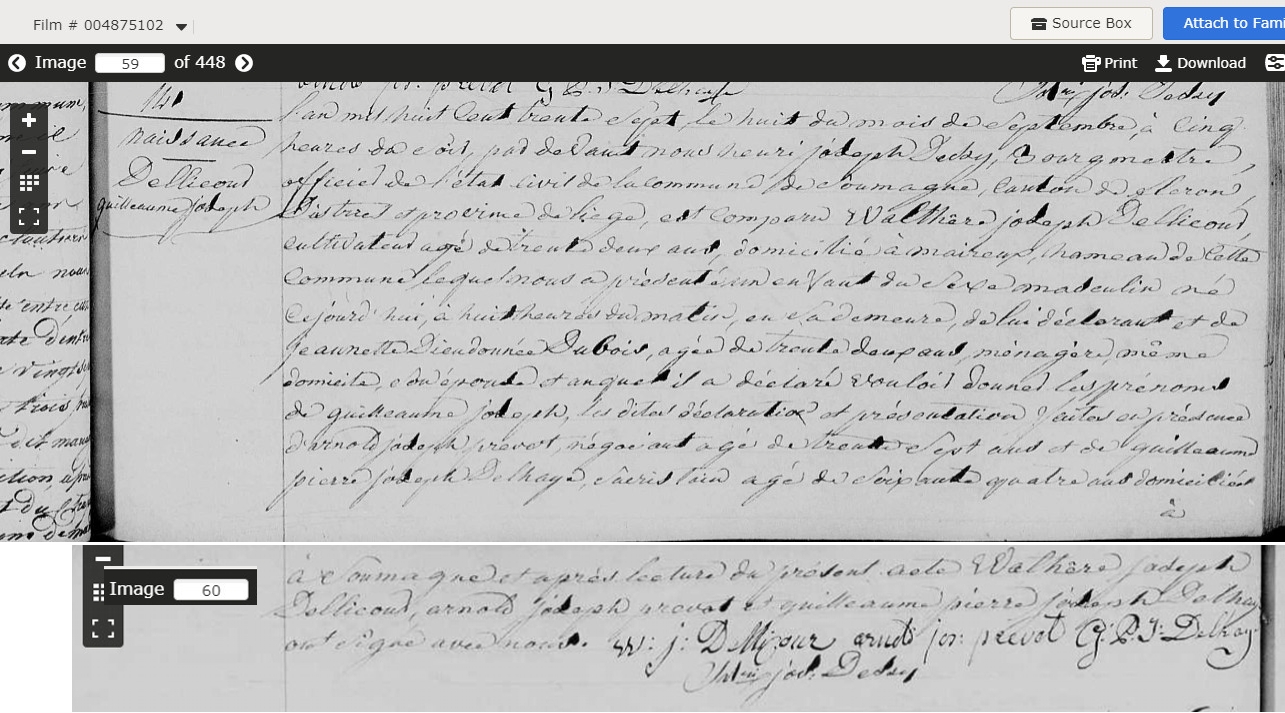 Film # 004875102
Source Box
Attach to Fami
Image 59 of 448
Print
Download
naissance
Dellicour
guilleaume joseph
L'an mil huit Cent trente Sept, le huit du mois de Septembre, à Cinq
heures du soir, par devant nous henri joseph Dessy, Bourgmestre,
officier de l'état Civil de la commune de Soumagne, Canton de fleron,
District et province de liege, est comparu Walthère joseph Dellicour,
cultivateur agé de trente deux ans, domicilié à maireux, hameau de Cette
Commune lequel nous a présenté un enfant du Sexe masculin né
Cejourd'hui, à huit heures du matin, en Sa demeure, de lui déclarant et de
Jeannette Dieudonnée Dubois, agée de trente deux ans, ménagère, même
domicile, son épouse et auquel il a déclaré vouloir donner les prénoms
de guilleaume joseph, les dites déclaration et présentation faites en présence
d'arnold joseph prevot, négociant agé de trente Sept ans et de guilleaume
pierre joseph Delhaye, sacristain agé de Soixante quatre ans domiciliés
à
Image 60
à Soumagne et après lecture du présent acte Walthère joseph
Dellicour, arnold joseph prevot et guilleaume pierre joseph Delhaye
ont signé avec nous. W: j: Dellicour arnold jos: prevot G: P: J: Delhaye
jos: Dessy